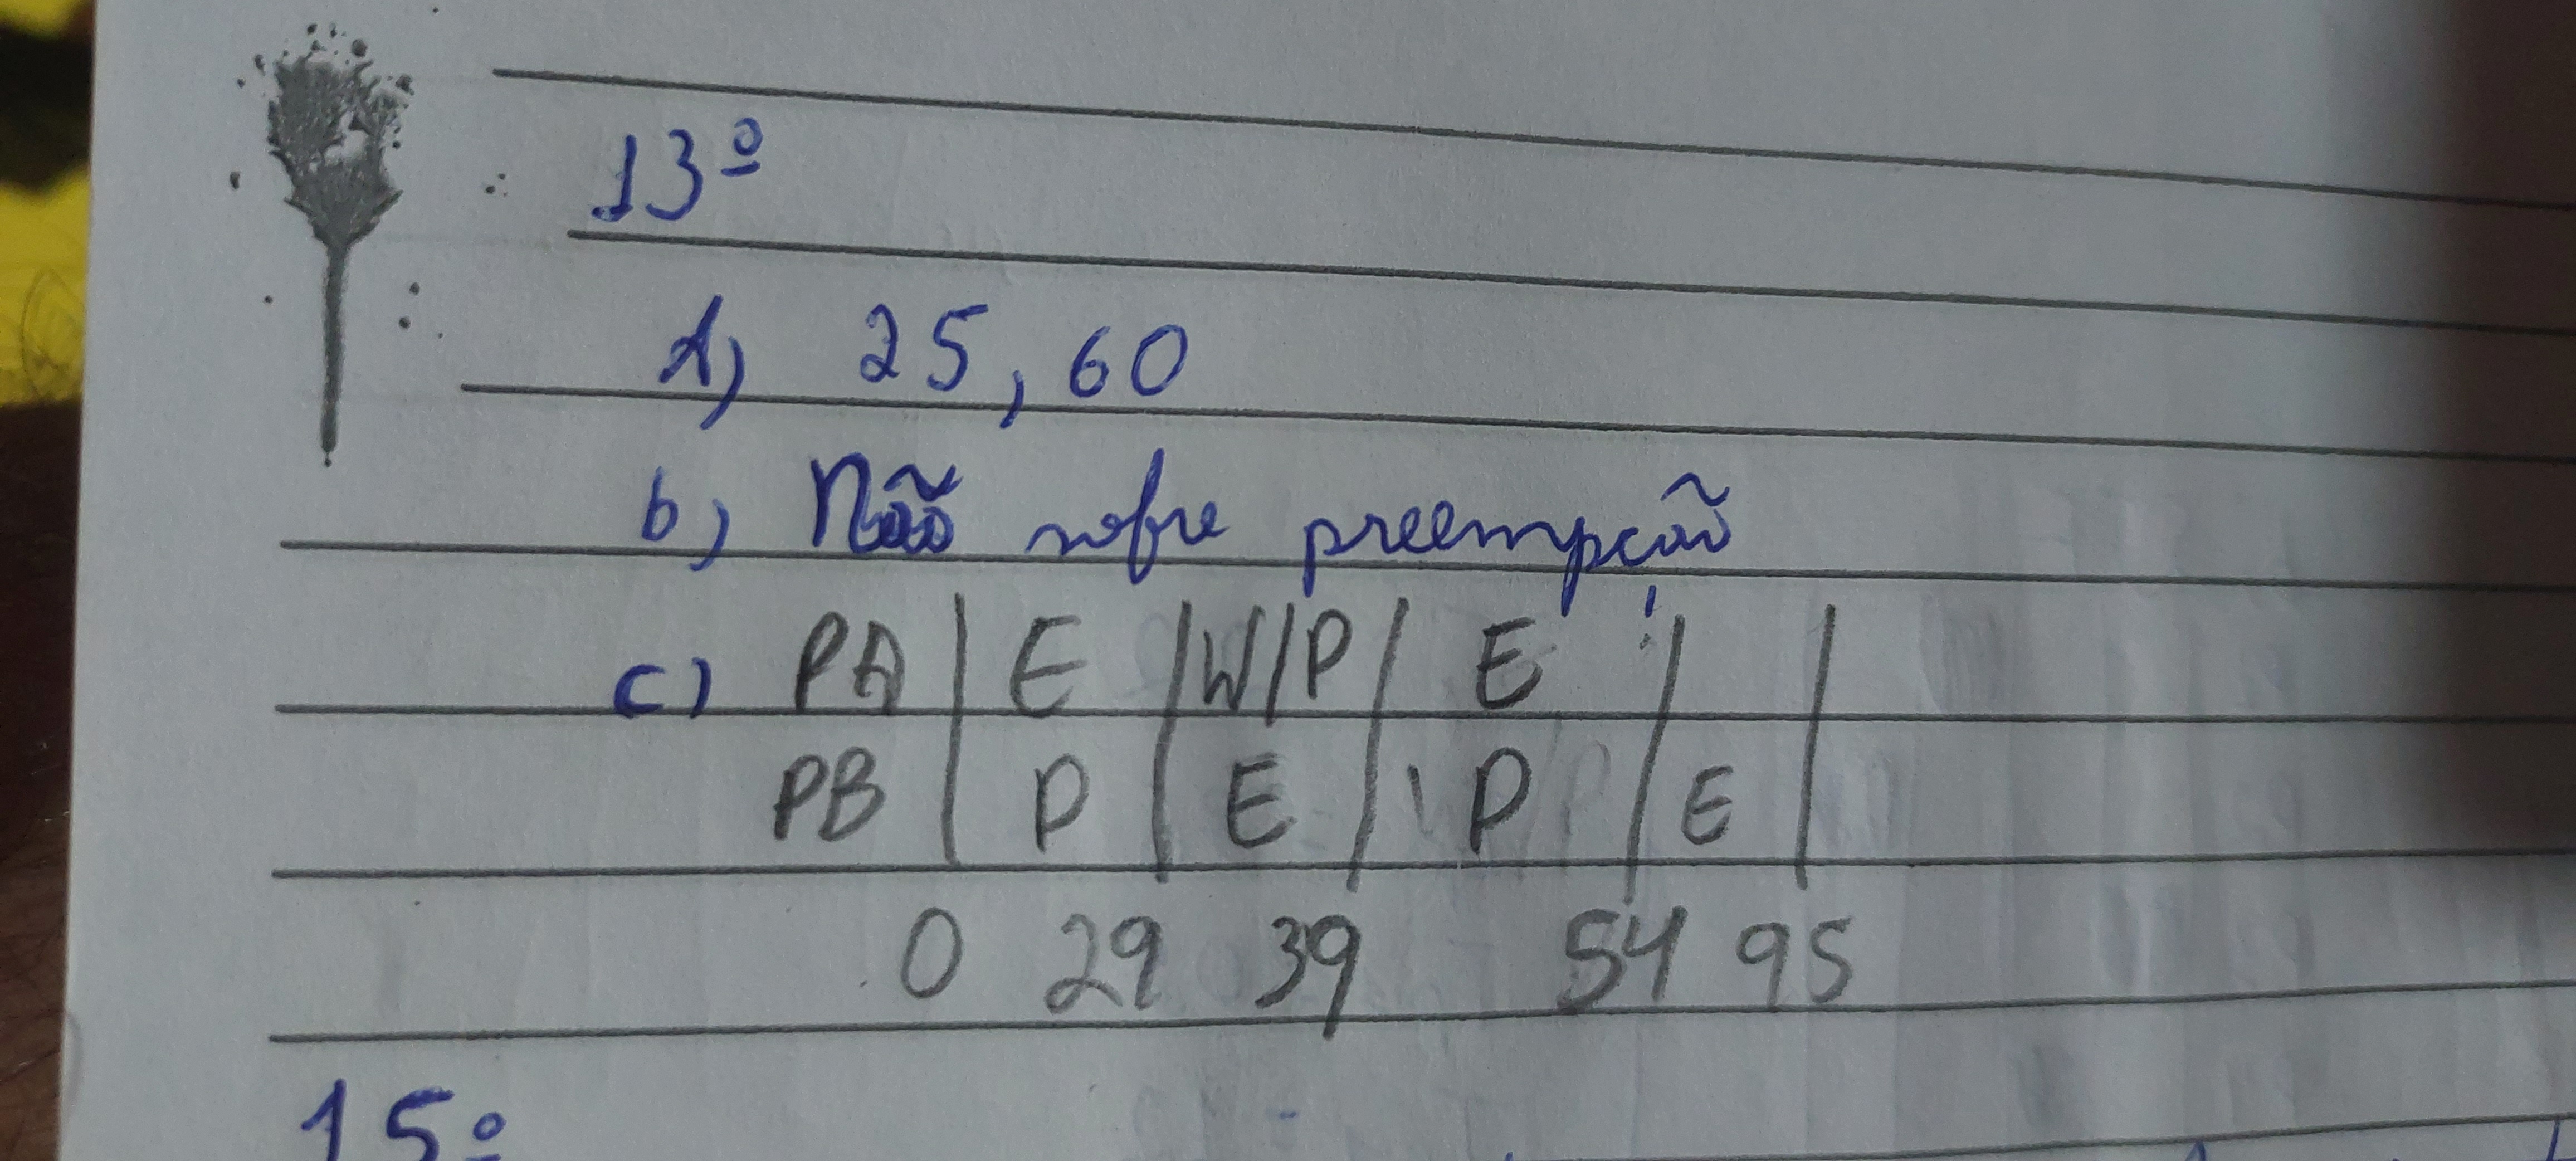 13º
A) 25,60
b) Não sofre preempção
c) PA | E | W | P | E |
PB | P | E | P | E |
0 29 39 54 95
15º